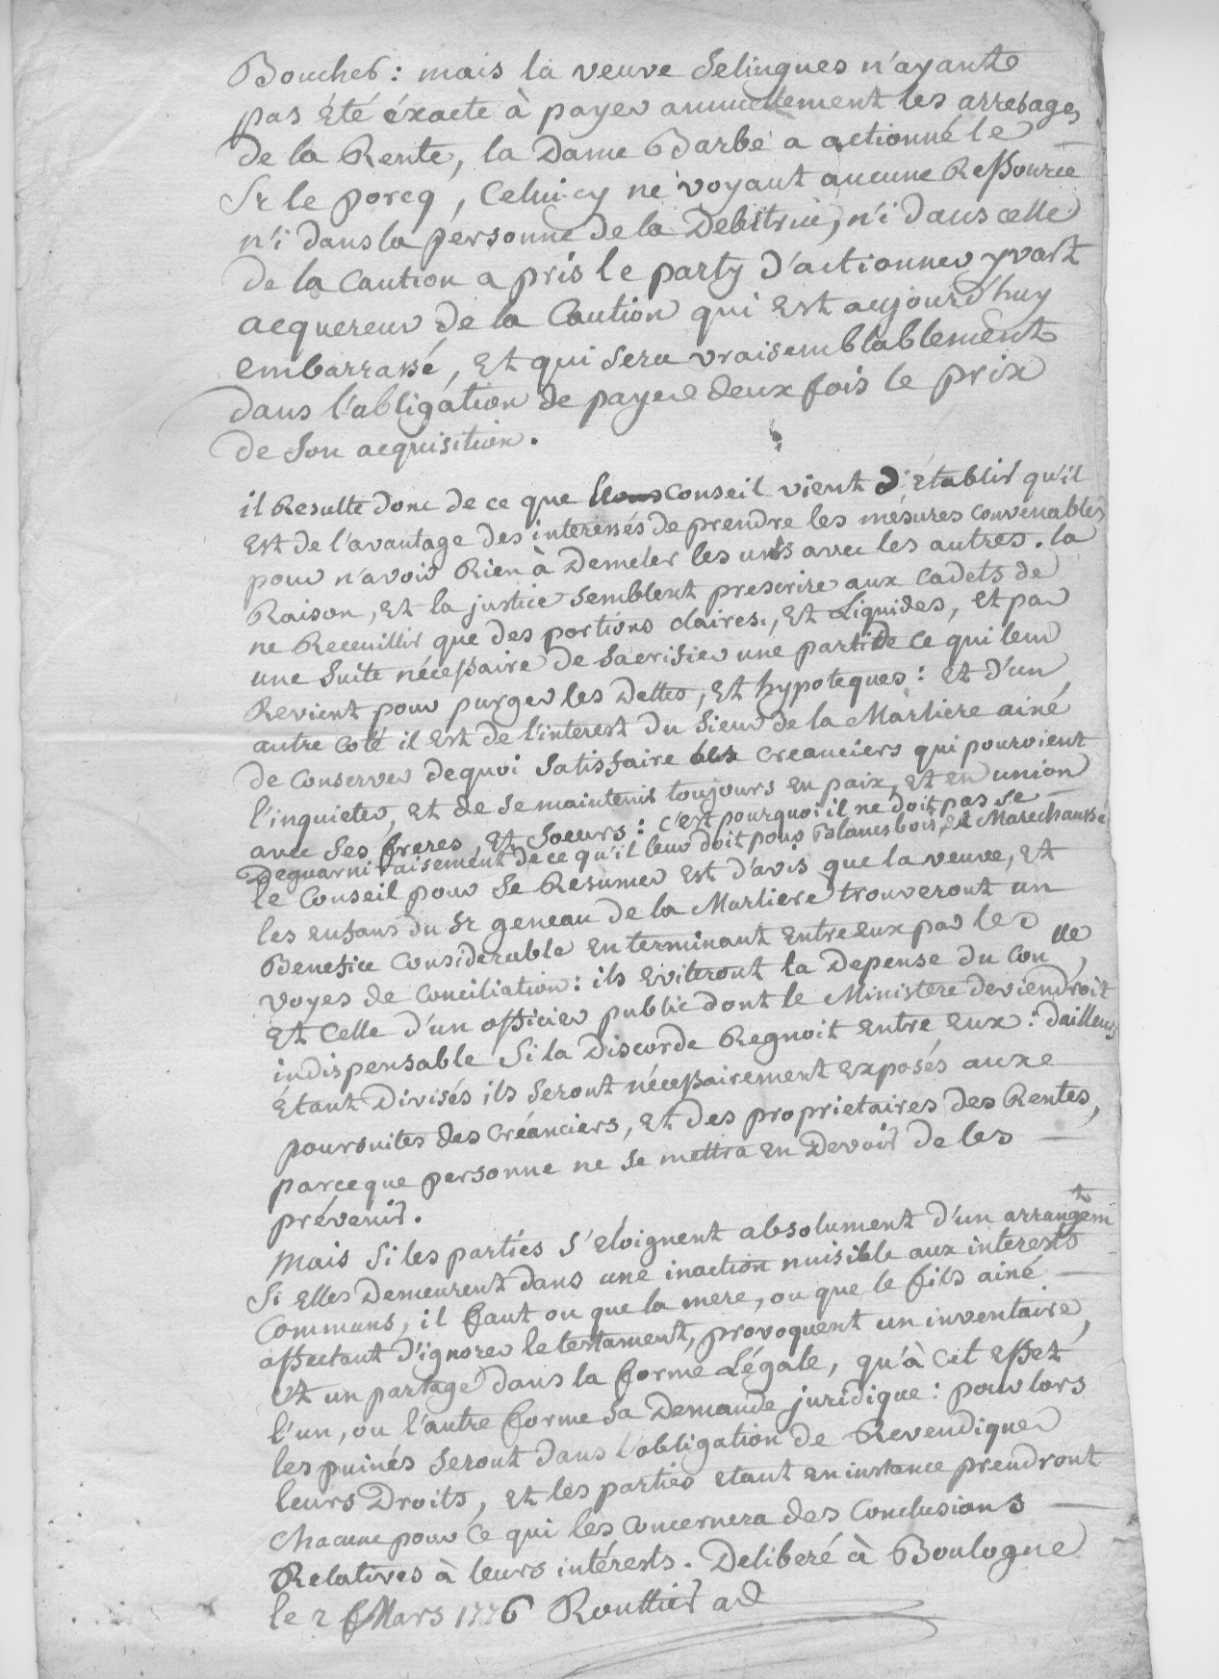 Boucher : mais la veuve Selingues n'ayant
pas été éxacte à payer annuellement les arrerages
de la Rente, la Dame Barbe a actionné le
Sr le porcq, Celui-cy ne voyant aucune Ressource
n'i dans la personne de la Debitrice, n'i dans celle
de la Caution a pris le party d'actionner yvart
acquereur de la Caution qui Est aujourd'huy
embarrassé, Et qui sera vraisemblablement
dans l'obligation de payer deux fois le prix
de Son acquisition.
il Resulte donc de ce que Conseil vient d'établir qu'il
Est de l'avantage des interessés de prendre les mésures convenables
pour n'avoir Rien à Demeler les uns avec les autres. la
Raison, Et la justice semblent prescrire aux Cadets de
ne Receuillir que des portions claires, Et Liquides, et par
une suite nécessaire de Sacrifier une partie de ce qui leur
Revient pour purger les Dettes, Et hypoteques : Et d'un
autre coté il Est de l'interest du Sieur de la Marliere ainé
de conserver dequoi satisfaire les creanciers qui pourroient
l'inquieter, Et de se maintenir toujours En paix, et en union
avec Ses freres, Et Soeurs : c'est pourquoi il ne doit pas se
Deguarnir aisement de ce qu'il leur doit pour Blancsbois, et Marechaussé
le Conseil pour se Resumer Est d'avis que la veuve, Et
les enfans du Sr geneau de la Marliere trouveront un
Benefice Considerable En terminant Entre eux par les
voyes de Conciliation : ils Eviteront la Depense du Con lle,
Et Celle d'un officier public dont le Ministere deviendroit
indispensable Si la Discorde Regnoit Entre Eux : dailleurs
Étant Divisés ils Seront nécessairement Exposés aux
poursuites des Créanciers, Et des proprietaires des Rentes,
parceque personne ne se mettra En Devoir de les
prévenir.
Mais Si les parties s'éloignent absolument d'un arrangemt
Si Elles Demeurent dans une inaction nuisible aux interests
Communs, il faut ou que la mere, ou que le fils ainé
affectant d'ignorer le testament, provoquent un inventaire,
Et un partage dans la forme Légale, qu'à Cet Effet
l'un, ou l'autre forme Sa Demande juridique : pour lors
les puinés Seront dans l'obligation de Revendiquer
leurs Droits, Et les parties etant En instance prendront
Chacune pour Ce qui les Concernera des Conclusions
Relatives à leurs intérests. Deliberé à Boulogne
le 2 Mars 1776 Routtier ad